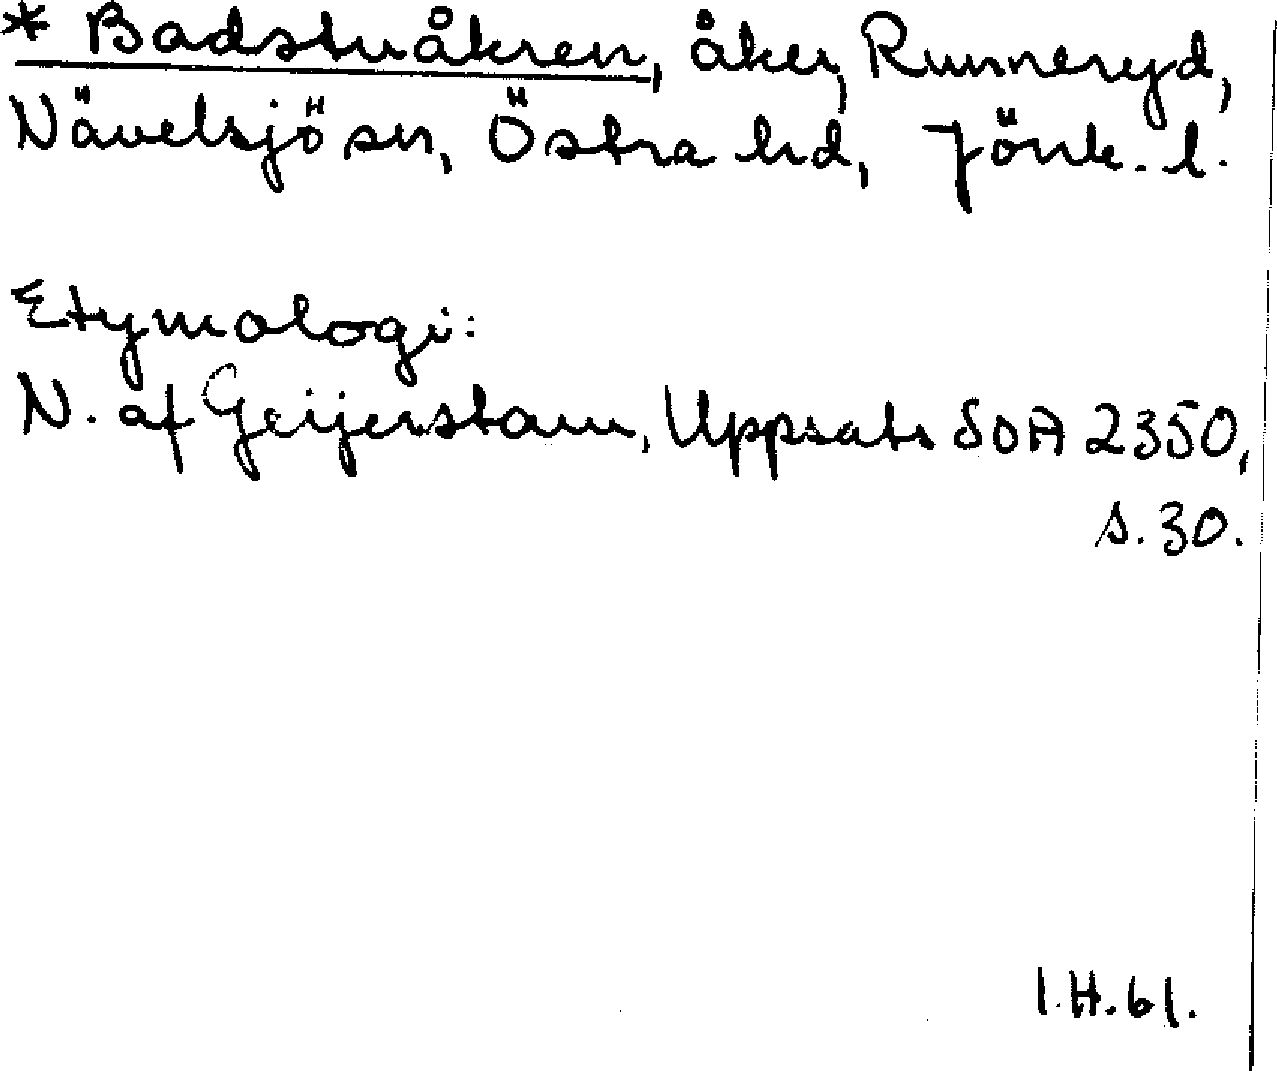 * Badstuåkren, åker, Runneryd,
Nävelsjö sn, Östra hd, Jönk. l.
Etymologi:
N. af Geijerstam, Uppsats SOA 2350,
s. 30.
I.H.61.